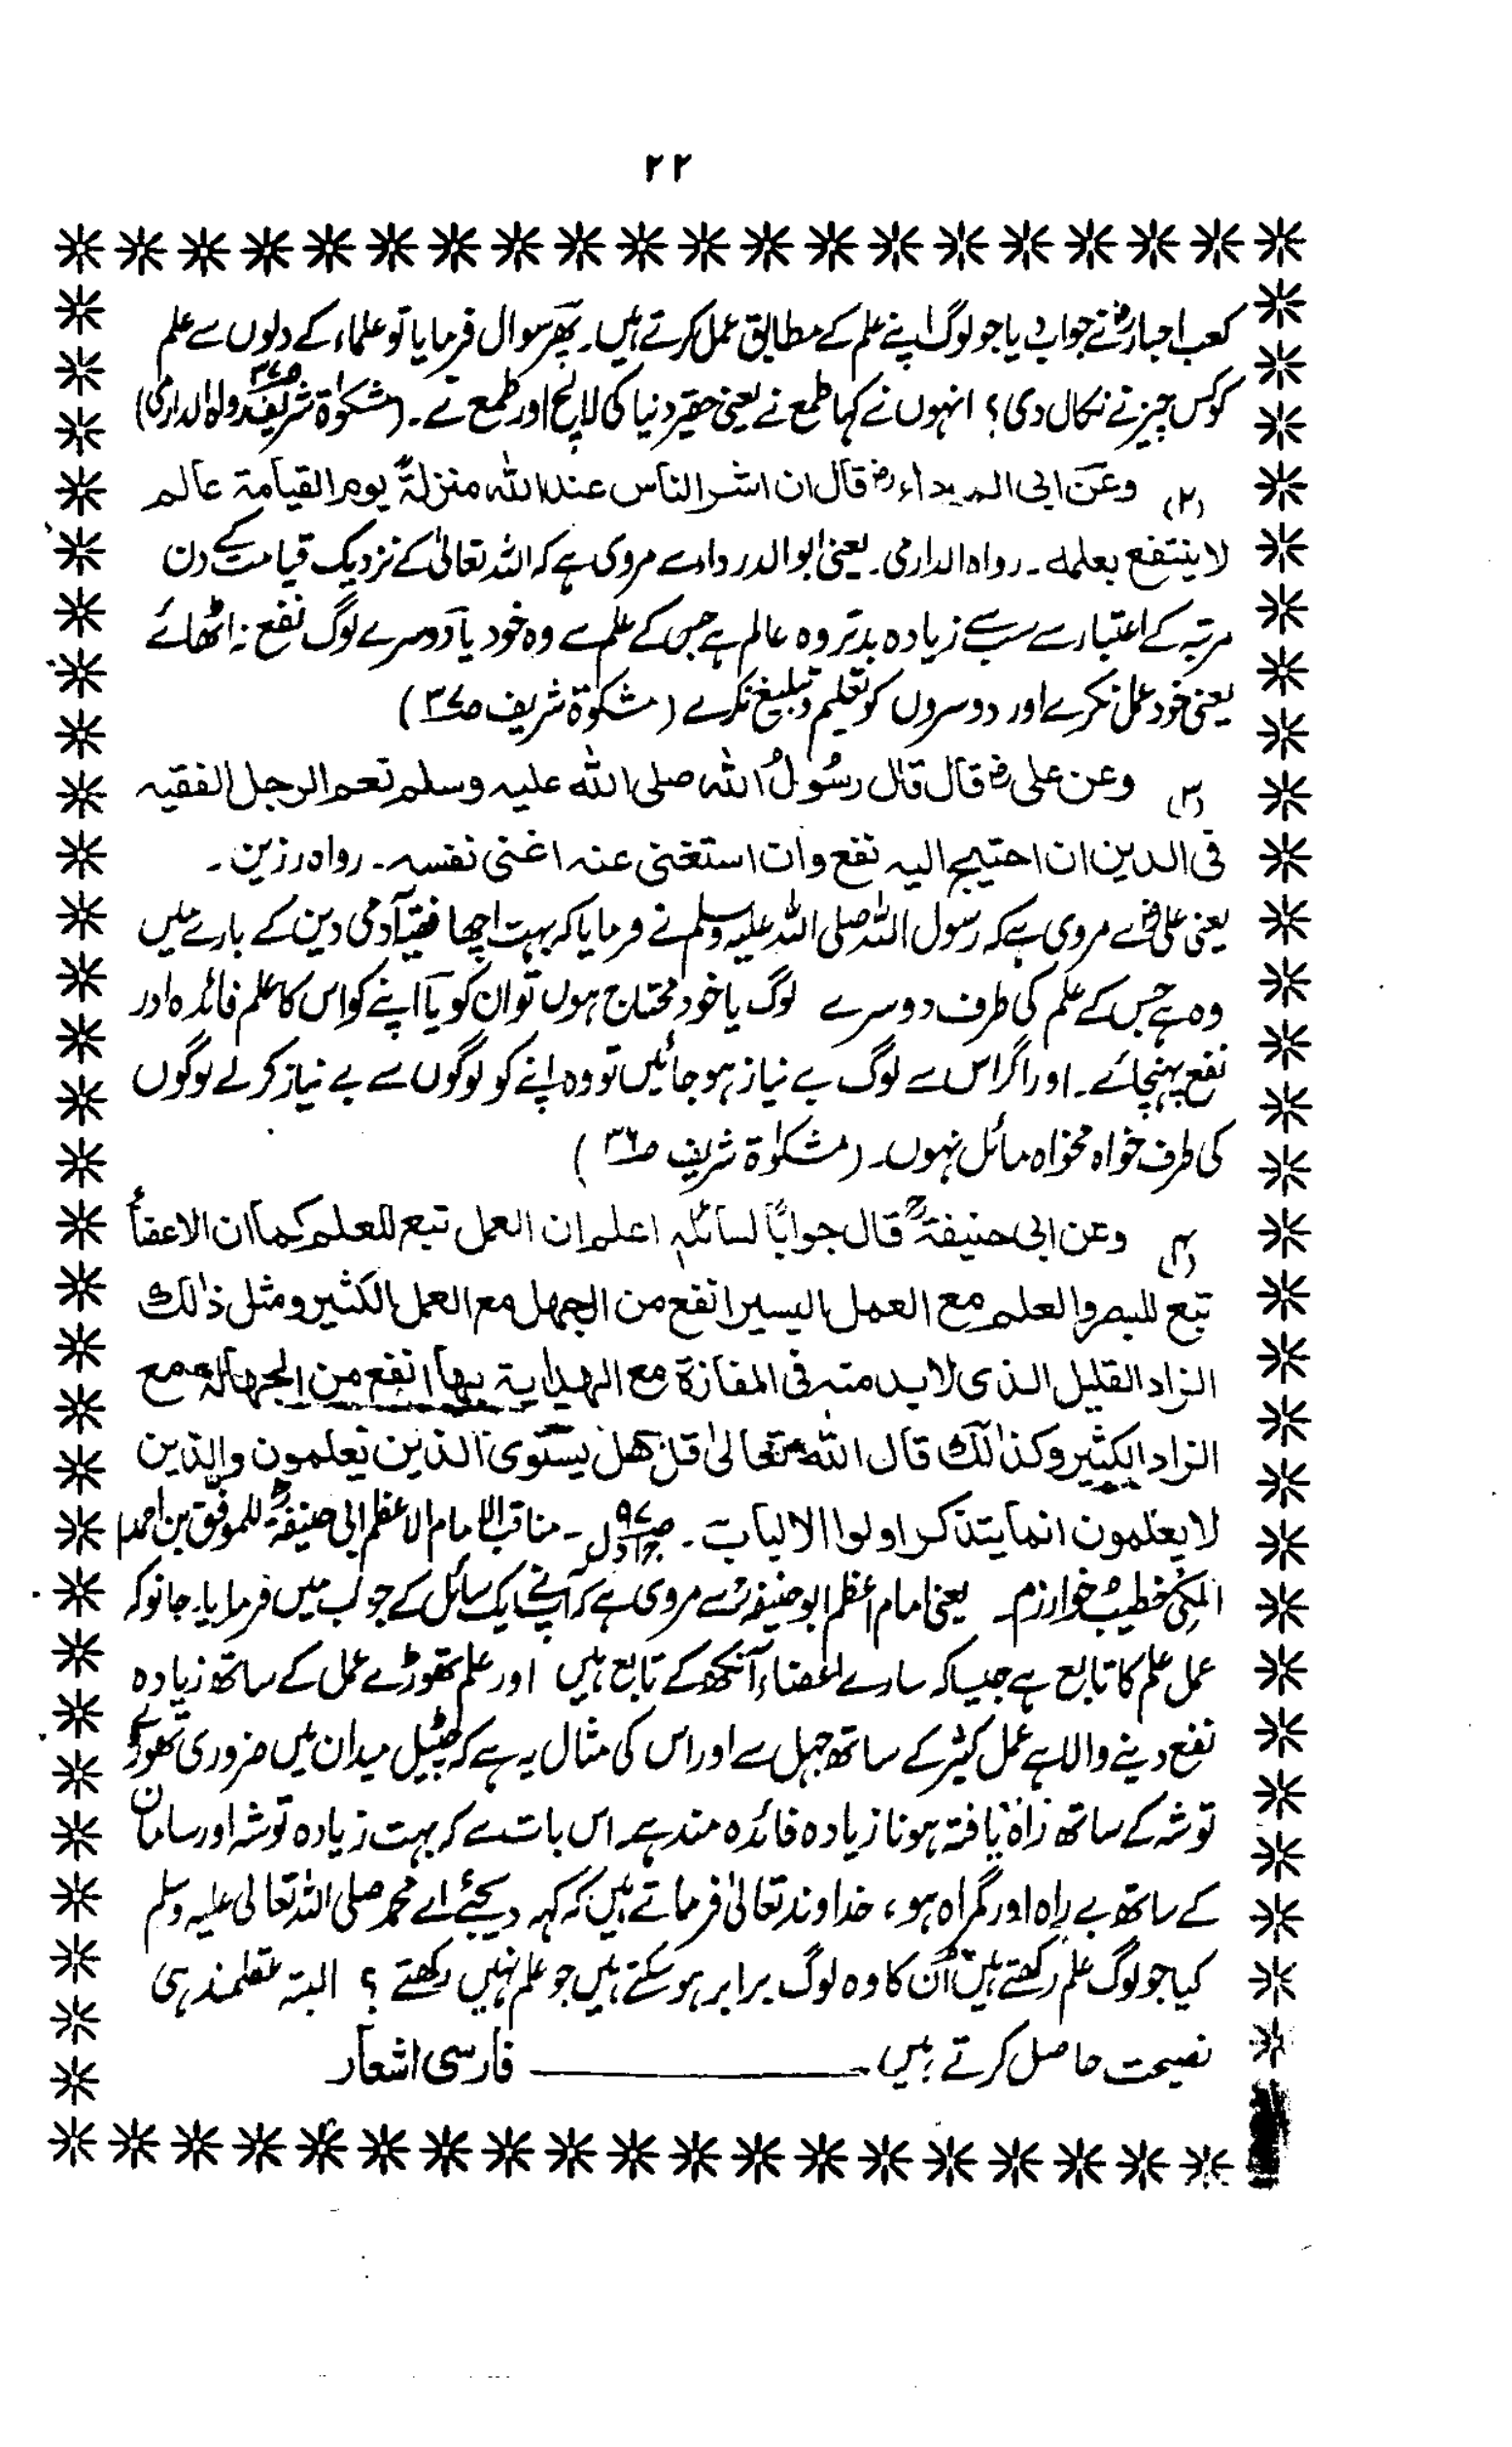 ۲۲
کعب احبارؓ نے جواب دیا جو لوگ اپنے علم کے مطابق عمل کرتے ہیں۔ پھر سوال فرمایا تو علماء کے دلوں سے علم
کو کس چیز نے نکال دی؟ انہوں نے کہا طمع نے یعنی حقیر دنیا کی لالچ اور طمع نے۔ (مشکوٰۃ شریف ص۳۷ رواہ الدارمی)
(۲) وعن ابی الدرداءؓ قال ان اشر الناس عند اللہ منزلۃً یوم القیامۃ عالم
لا ینتفع بعلمہ۔ رواہ الدارمی۔ یعنی ابوالدرداء سے مروی ہے کہ اللہ تعالیٰ کے نزدیک قیامت کے دن
مرتبہ کے اعتبار سے سب سے زیادہ بدتر وہ عالم ہے جس کے علم سے وہ خود یا دوسرے لوگ نفع نہ اٹھائے
یعنی خود عمل نکرے اور دوسروں کو تعلیم و تبلیغ نکرے (مشکوٰۃ شریف ص۳۷)
(۳) وعن علیؓ قال قال رسُولُ اللہ صلی اللہ علیہ وسلم نعم الرجل الفقیہ
فی الدین ان احتیج الیہ نفع وان استغنی عنہ اغنی نفسہ۔ رواہ رزین۔
یعنی علیؓ سے مروی ہے کہ رسول اللہ صلی اللہ علیہ وسلم نے فرمایا کہ بہت اچھا فقیہ آدمی دین کے بارے میں
وہ ہے جس کے علم کی طرف دوسرے لوگ یا خود محتاج ہوں تو ان کو یا اپنے کو اس کا علم فائدہ اور
نفع پہنچائے۔ اور اگر اس سے لوگ بے نیاز ہو جائیں تو وہ اپنے کو لوگوں سے بے نیاز کرلے لوگوں
کی طرف خواہ مخواہ مائل نہوں۔ (مشکوٰۃ شریف ص۳۶)
(۴) وعن ابی حنیفۃؒ قال جوابًا لسائلہ اعلم ان العمل تبع للعلم کما ان الاعضاء
تبع للبصر والعلم مع العمل الیسیر انفع من الجھل مع العمل الکثیر ومثل ذٰلک
الزاد القلیل الذی لابد منہ فی المفازۃ مع الھدایۃ بھا انفع من الجھالۃ مع
الزاد الکثیر وکذٰلک قال اللہ تعالیٰ قل ھل یستوی الذین یعلمون والذین
لا یعلمون انما یتذکر اولوا الالباب۔ ص۹۷ ج اول۔ مناقب الامام الاعظم ابی حنیفۃؒ للموفّق بن احمد
المکی خطیب خوارزم۔ یعنی امام اعظم ابو حنیفہؒ سے مروی ہے کہ آپنے ایک سائل کے جواب میں فرمایا۔ جانو کہ
عمل علم کا تابع ہے جیسا کہ سارے اعضاء آنکھ کے تابع ہیں اور علم تھوڑے عمل کے ساتھ زیادہ
نفع دینے والا ہے عمل کثیر کے ساتھ جہل سے اور اس کی مثال یہ ہے کہ چٹیل میدان میں ضروری تھوڑے
توشہ کے ساتھ راہ یافتہ ہونا زیادہ فائدہ مند ہے اس بات سے کہ بہت زیادہ توشہ اور سامان
کے ساتھ بے راہ اور گمراہ ہو، خداوند تعالیٰ فرماتے ہیں کہ کہہ دیجئے اے محمد صلی اللہ تعالیٰ علیہ وسلم
کیا جو لوگ علم رکھتے ہیں اُن کا وہ لوگ برابر ہو سکتے ہیں جو علم نہیں رکھتے؟ البتہ عقلمند ہی
نصیحت حاصل کرتے ہیں۔ ــــــــــــــ فارسی اشعار